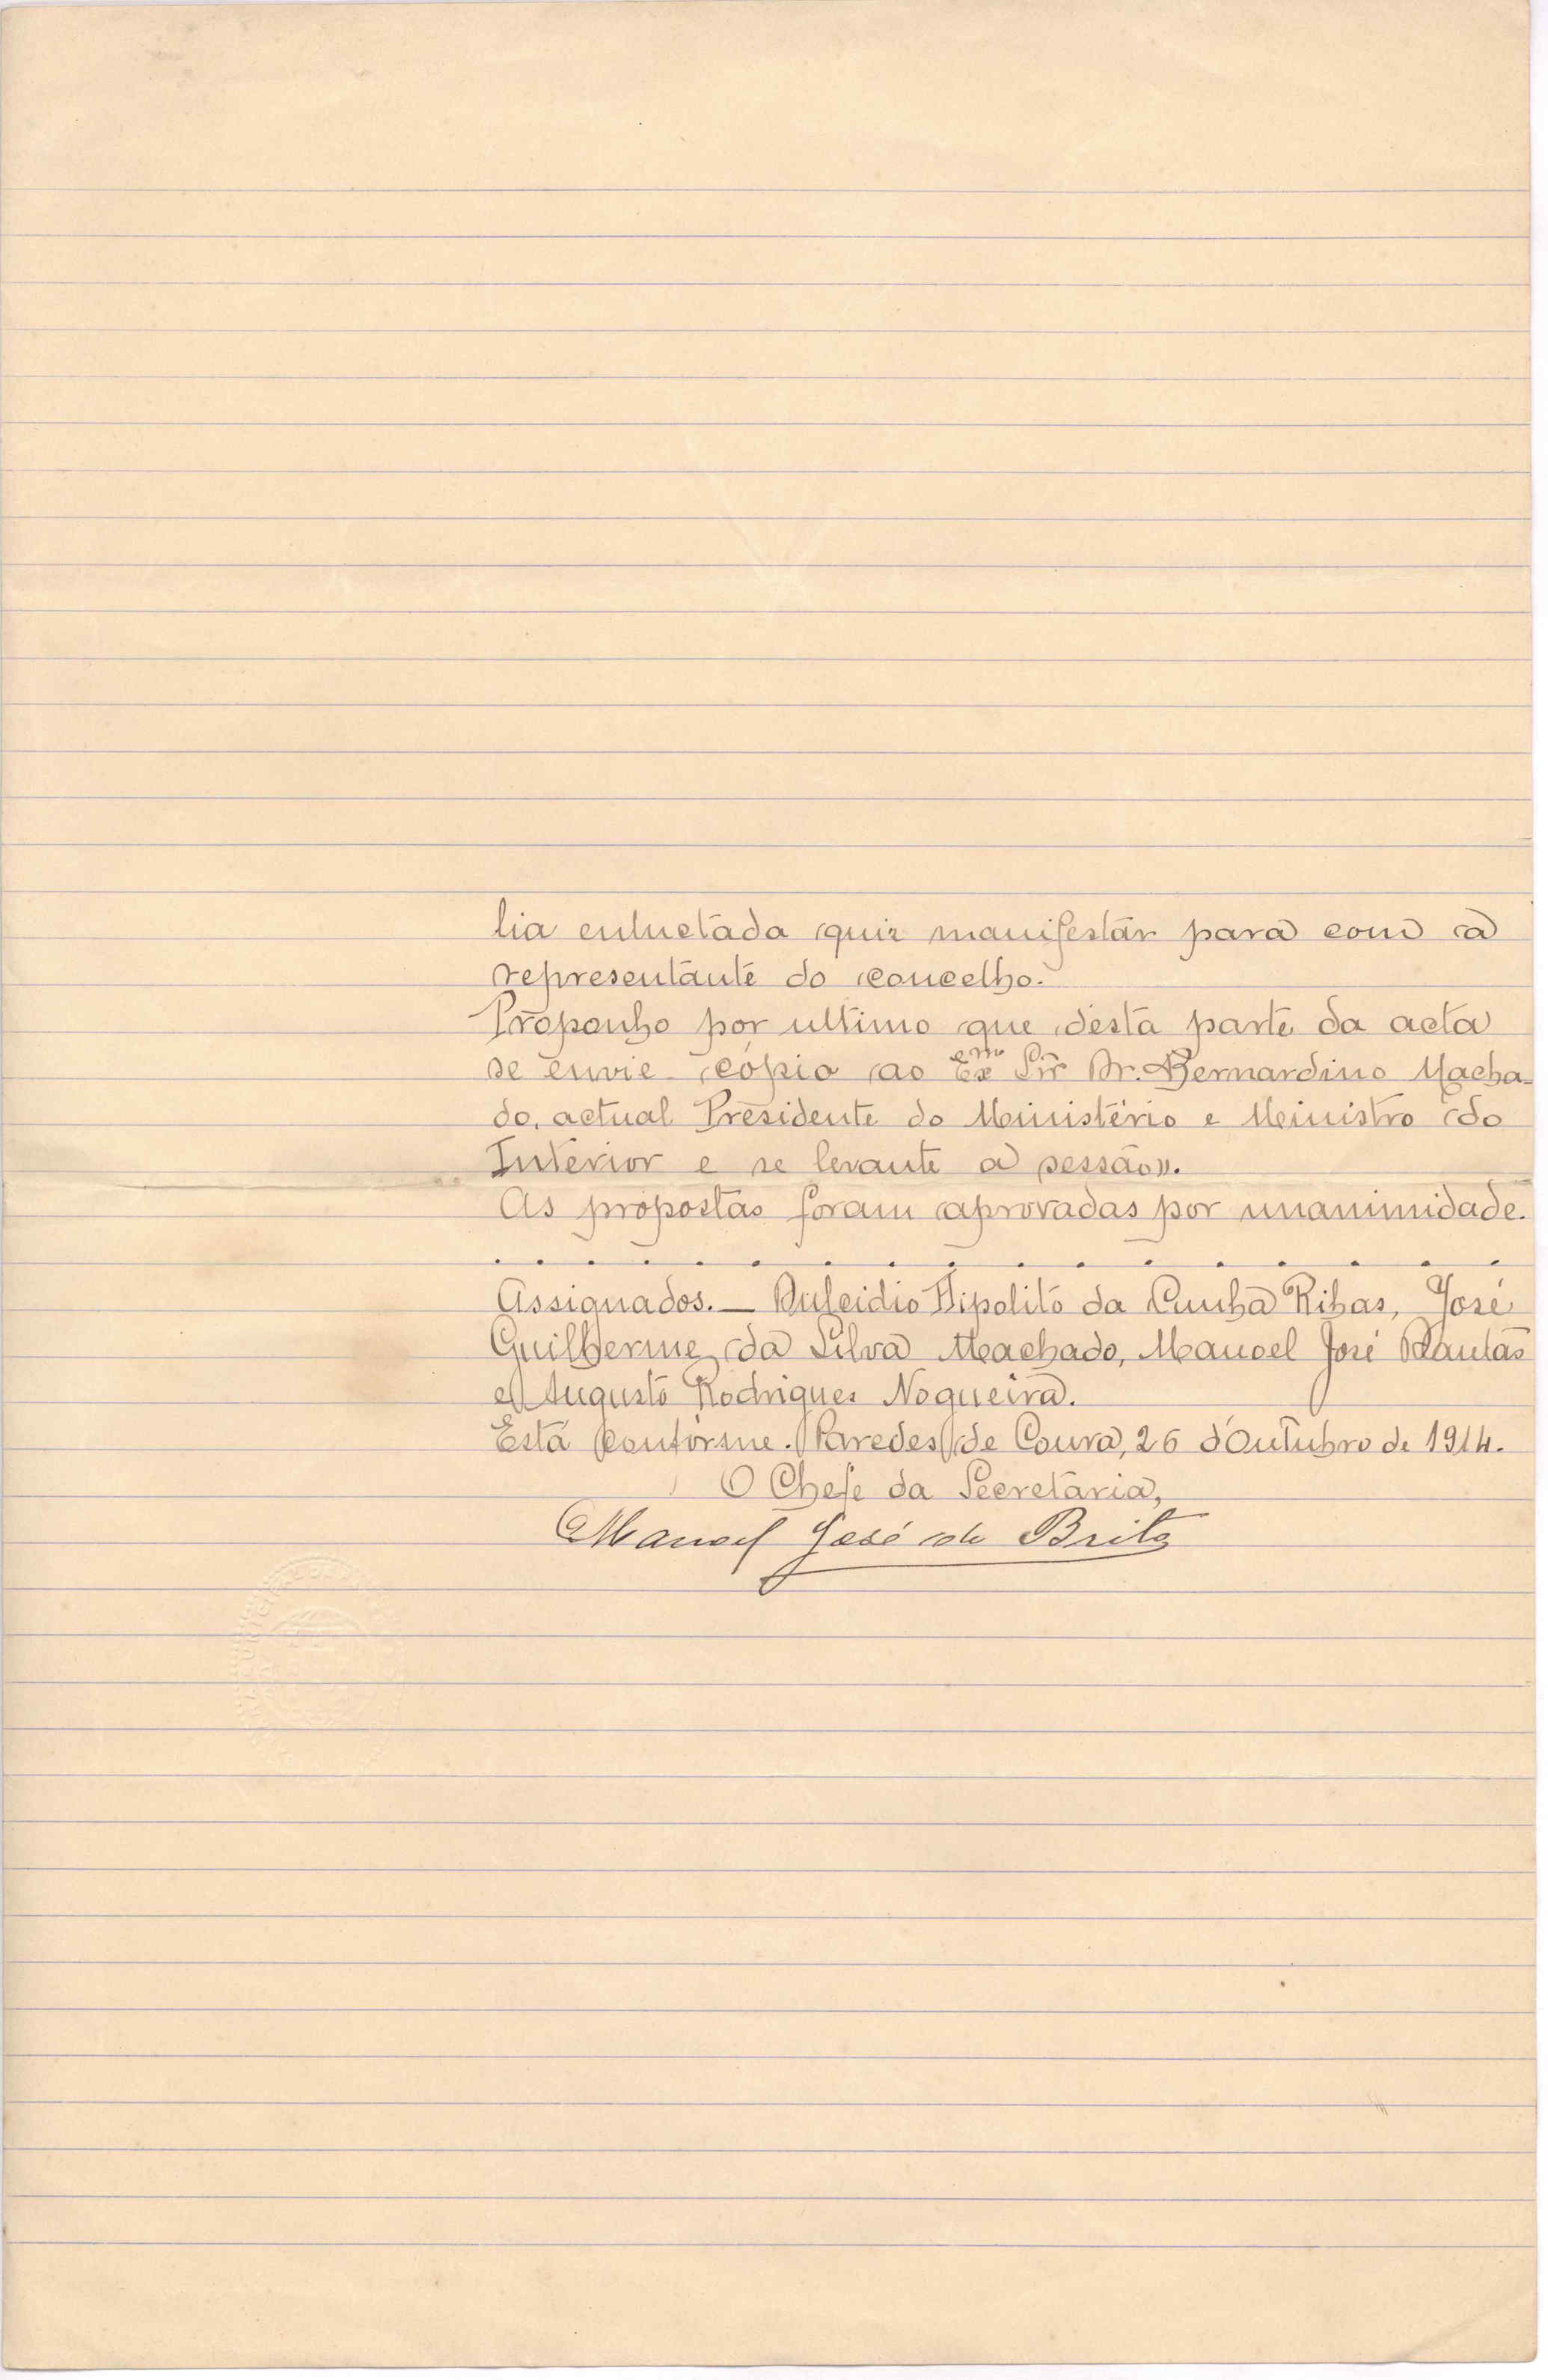 lia enluctada quiz manifestár para com a
representante do concelho.
Proponho por ultimo que desta parte da acta
se envie cópia ao Exemo Snr Dr. Bernardino Macha-
do, actual Presidente do Ministério e Ministro do
Interior e se levante a sessão».
As propostas foram aprovadas por unanimidade.
. . . . . . . . . . . . . . . . .
Assignados. — Dulcidio Hipolito da Cunha Ribas, José
Guilherme da Silva Machado, Manoel José Dantas
e Augusto Rodrigues Nogueira.
Está conforme. Paredes de Coura, 26 d'Outubro de 1914.
O Chefe da Secretaria,
Manoel José de Brito